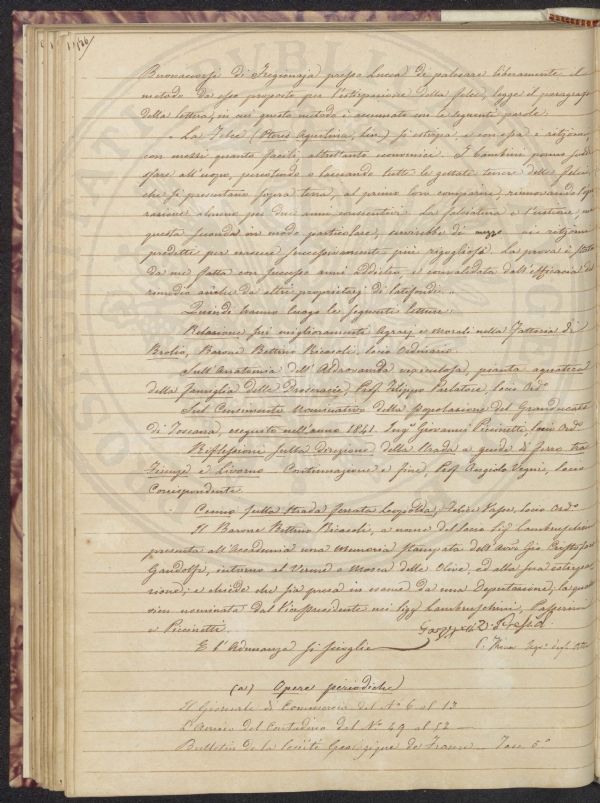 Buonaccorsi di Fregionaja presso Lucca di palesare liberamente il
metodo da esso proposto per l'estirpazione della felce, legge il paragrafo
della lettera, in cui questo metodo è accennato con le seguenti parole:
" La Felce (Pteris Aquilina, Lin.) si estirpa e con essa i ritzomi,
con mezzi quanto facili, altrettanto economici. I bambini ponno sodis-
fare all'uopo, percotendo o lacerando tutte le gettate tenere delle felci,
che si presentano sopra terra, al primo loro comparire, rinnovando l'ope
razione almeno per due anni consecutivi. La falciatura e l'estirpe, ma
questa seconda in modo particolare, servirebbe di mezzo ai ritzomi
predetti per nascere successivamente più rigogliosi. La prova è stata
da me fatta con successo anni addietro, e convalidata dall'efficacia del
rimedio anche da altri proprietarj di latifondi. "
Quindi hanno luogo le seguenti letture:
Relazione sui miglioramenti Agrarj e Morali nella Fattoria di
Brolio, Barone Bettino Ricasoli, Socio Ordinario.
Sull'Anatomia dell'Aldrovanda vesciculosa, pianta aquatica
della famiglia delle Droseracee, Prof. Filippo Parlatore, Socio Ord.º
Sul Censimento Nominativo della popolazione del Granducato
di Toscana, eseguito nell'anno 1841. Ing.re Giovanni Piccinetti, Socio Ord.º
Riflessioni sulla direzione della Strada a guide di ferro tra
Firenze e Livorno Continuazione e fine, Prof. Angiolo Vegni, Socio
Corrispondente.
Cenno sulla Strada ferrata Leopolda, Felice Vasse, Socio Ord.º
Il Barone Bettino Ricasoli, a nome del Socio Sig. Lambruschini
presenta all'Accademia una Memoria stampata dell'Avv.º Gio. Cristoforo
Gandolfi, intorno al Verme o Mosca delle Olive, ed alla sua estirpa-
zione; e chiede che sia presa in esame da una Deputazione; la quale
vien nominata dal Vicepresidente nei Sigg. Lambruschini, Passerini
e Piccinetti.
E l'Adunanza si scioglie
Segr.º degli Atti
(a) Opere periodiche
Il Giornale di Commercio dal N.º 6 al 13
L'Amico del Contadino dal N.º 49 al 52
Bulletin de la Société Géologique de France Fasc. 5º